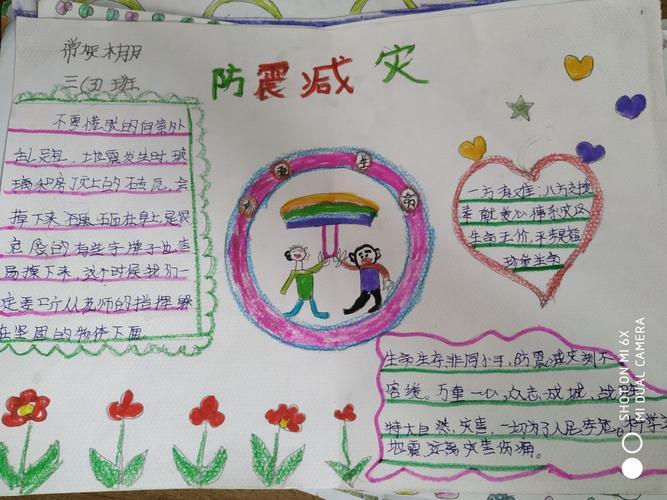 三(3)班
防震减灾
不要慌张的向室外
乱跑, 地震发生时 玻
璃和房顶上的砖瓦, 会
掉下来 砸在身上是很
危险的 有些字牌子也容
易掉下来 这个时候我们一
定要听从老师的指挥 躲
在坚固的物体下面
珍 爱 生 命
一方有难: 八方支援
奉献爱心 情系灾区
生命无价, 平安是福
珍爱生命
生命生存非同小可, 防震减灾刻不
容缓。万重一心, 众志成城, 战
特大自然灾害, 一切为了人民幸福。科学
地震 远离灾害伤痛。
SHOT ON MI 6X
MI DUAL CAMERA